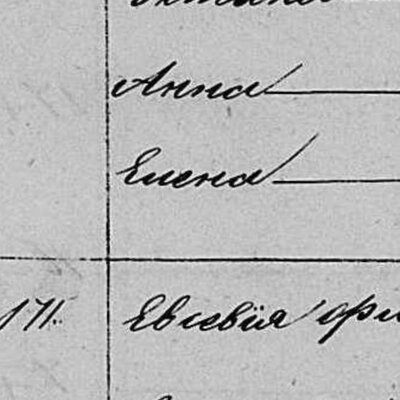 Анна
Елена
171. Евсевія